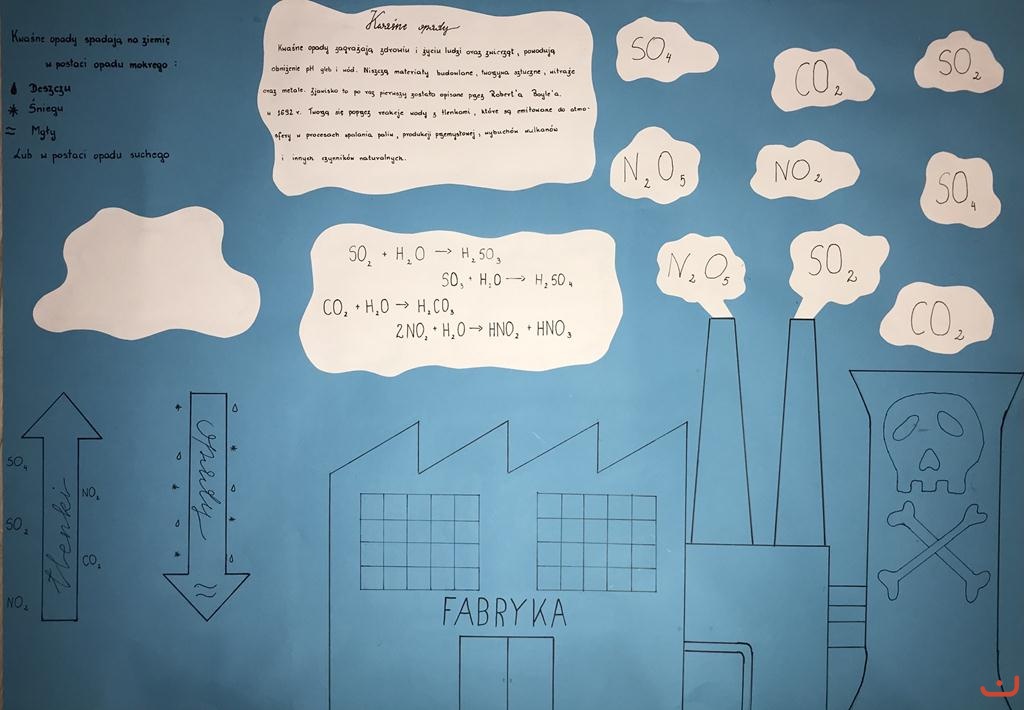 Kwaśne opady spadają na ziemię
w postaci opadu mokrego :
Deszczu
Śniegu
Mgły
Lub w postaci opadu suchego
Kwaśne opady
Kwaśne opady zagrażają zdrowiu i życiu ludzi oraz zwierząt, powodują
obniżenie pH gleb i wód. Niszczą materiały budowlane, tworzywa sztuczne, witraże
oraz metale. Zjawisko to po raz pierwszy zostało opisane przez Robert'a Boyle'a.
w 1692 r. Tworzą się poprzez reakcje wody z tlenkami, które są emitowane do atmo-
sfery w procesach spalania paliw, produkcji przemysłowej, wybuchów wulkanów
i innych czynników naturalnych.
SO₄
CO₂
SO₂
N₂O₅
NO₂
SO₄
N₂O₅
SO₂
CO₂
SO₂ + H₂O → H₂SO₃
SO₃ + H₂O → H₂SO₄
CO₂ + H₂O → H₂CO₃
2NO₂ + H₂O → HNO₂ + HNO₃
SO₄
NO₂
SO₂
CO₂
NO₂
tlenki
opady
FABRYKA